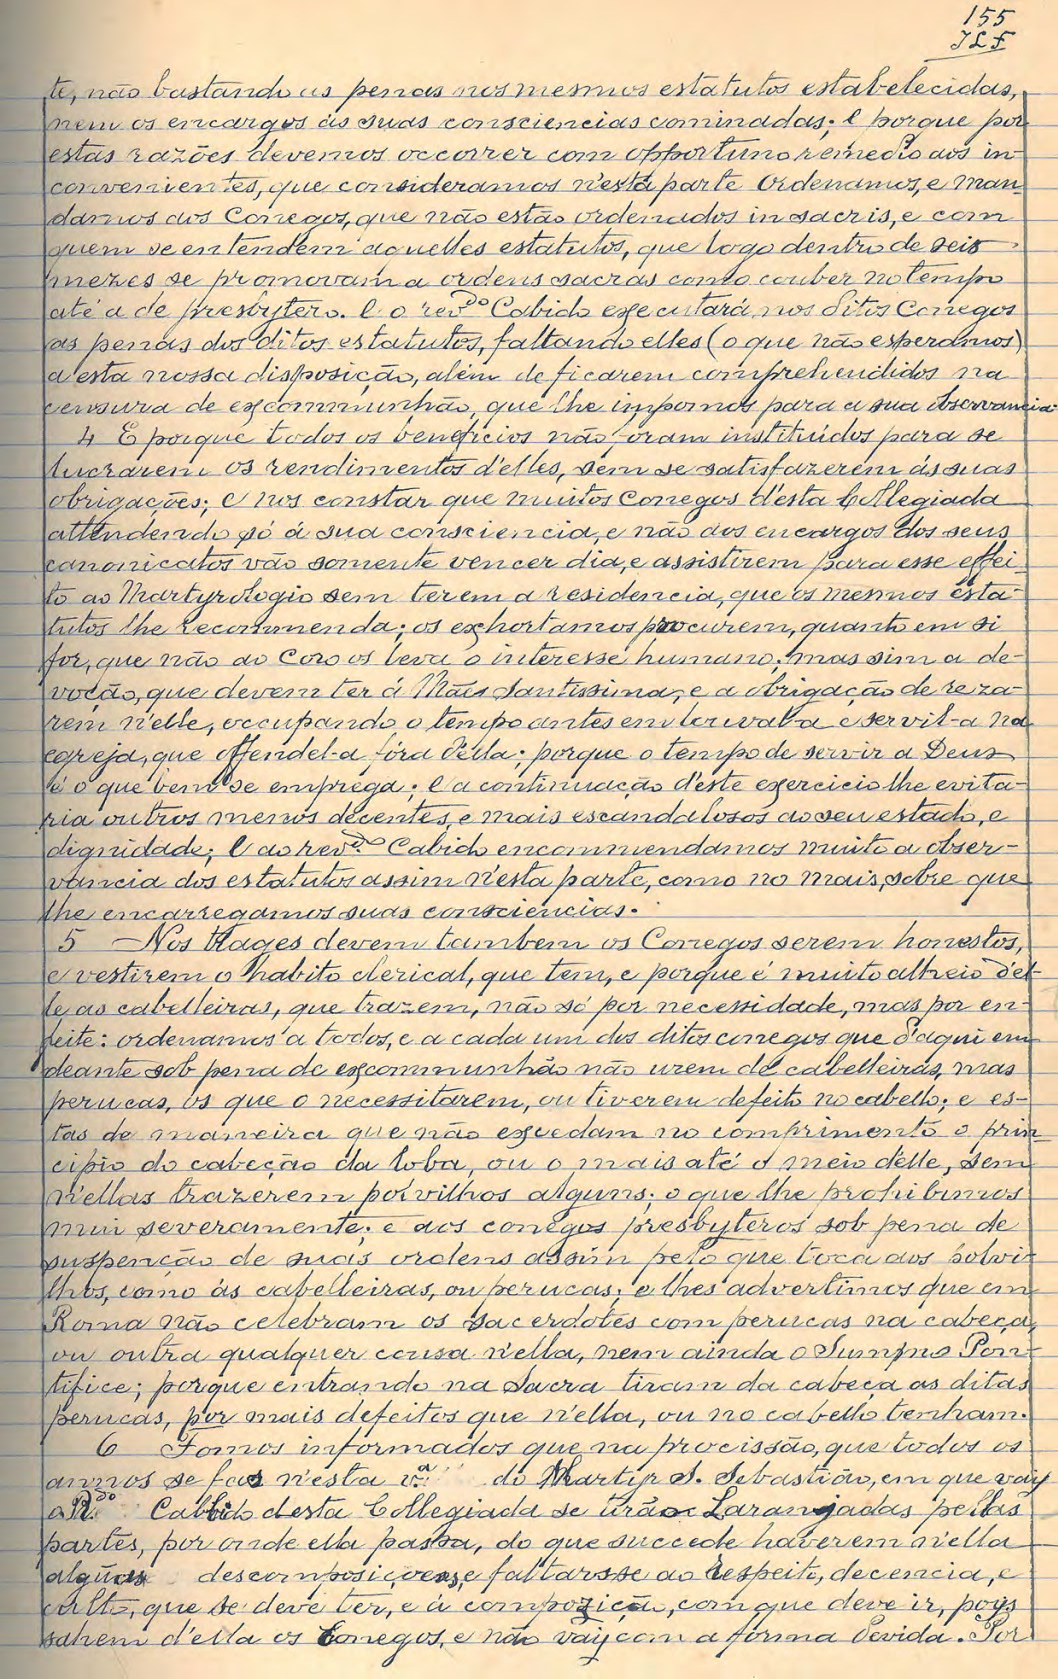 155
JLF
te, não bastando as penas nos mesmos estatutos estabelecidas,
nem os encargos ás suas consciencias cominadas; E porque por
estas razões devemos occorrer com opportuno remedio aos in-
convenientes, que consideramos n'esta parte Ordenamos, e Man-
damos aos Conegos, que não estão ordenados in sacris, e com
quem se entendem aquelles estatutos, que logo dentro de seis
mezes se promovam a ordens sacras como couber no tempo
até a de presbytero. E o revdo Cabido executará nos ditos Conegos
as penas dos ditos estatutos, faltando elles (o que não esperamos)
a esta nossa disposição, além de ficarem comprehendidos na
censura de excommunhão, que lhe impomos para a sua observancia
4 E porque todos os beneficios não foram instituidos para se
lucrarem os rendimentos d'elles, sem se satisfazerem ás suas
obrigações; E nos constar que muitos Conegos d'esta Collegiada
attendendo só á sua consciencia, e não aos encargos dos seus
canonicatos vão somente vencer dia, e assistirem para esse effei-
to ao Martyrologio sem terem a residencia, que os mesmos esta-
tutos lhe recommenda; os exhortamos procurem, quanto em si
for, que não ao Coro os leva o interesse humano; mas sim a de-
voção, que devem ter á Mãe Santissima, e a obrigação de reza-
rem n'elle, occupando o tempo antes em louval-a e servil-a na
egreja, que offendel-a fóra d'ella; porque o tempo de servir a Deus
é o que bem se emprega; E a continuação d'este exercicio lhe evita-
ria outros menos decentes, e mais escandalosos ao seu estado, e
dignidade; E ao revdo Cabido encommendamos muito a obser-
vancia dos estatutos assim n'esta parte, como no mais, sobre que
lhe encarregamos suas consciencias.
5 — Nos trages devem tambem os Conegos serem honestos,
e vestirem o habito clerical, que tem, e porque é muito alheio d'el-
le as cabelleiras, que trazem, não só por necessidade, mas por en-
feite: ordenamos a todos, e a cada um dos ditos conegos que d'aqui em
deante sob pena de excommunhão não usem de cabelleiras, mas
perucas, os que o necessitarem, ou tiverem defeito no cabello; e es-
tas de maneira que não excedam no comprimento o prin-
cipio do cabeção da loba, ou o mais até o meio d'elle, sem
n'ellas trazerem polvilhos alguns; o que lhe prohibimos
mui severamente; e aos conegos presbyteros sob pena de
suspenção de suas ordens assim pelo que toca aos polvi-
lhos, como ás cabelleiras, ou perucas; e lhes advertimos que em
Roma não celebram os sacerdotes com perucas na cabeça,
ou outra qualquer cousa n'ella, nem ainda o Summo Pon-
tifice; porque entrando na Sacra tiram da cabeça as ditas
perucas, por mais defeitos que n'ella, ou no cabello tenham.
6 Fomos informados que na procissão, que todos os
annos se fas n'esta va do Martyr S. Sebastião, em que vay
o Rdo Cabbido desta Collegiada se tirão Laranjadas pellas
partes, por onde ella passa, do que succede haverem n'ella
algũas descomposiçoens, e faltarsse ao respeito, decencia, e
culto, que se deve ter, e á compozição, com que deve ir, poys
sahem d'ella os Conegos, e não vay com a fórma devida. Por